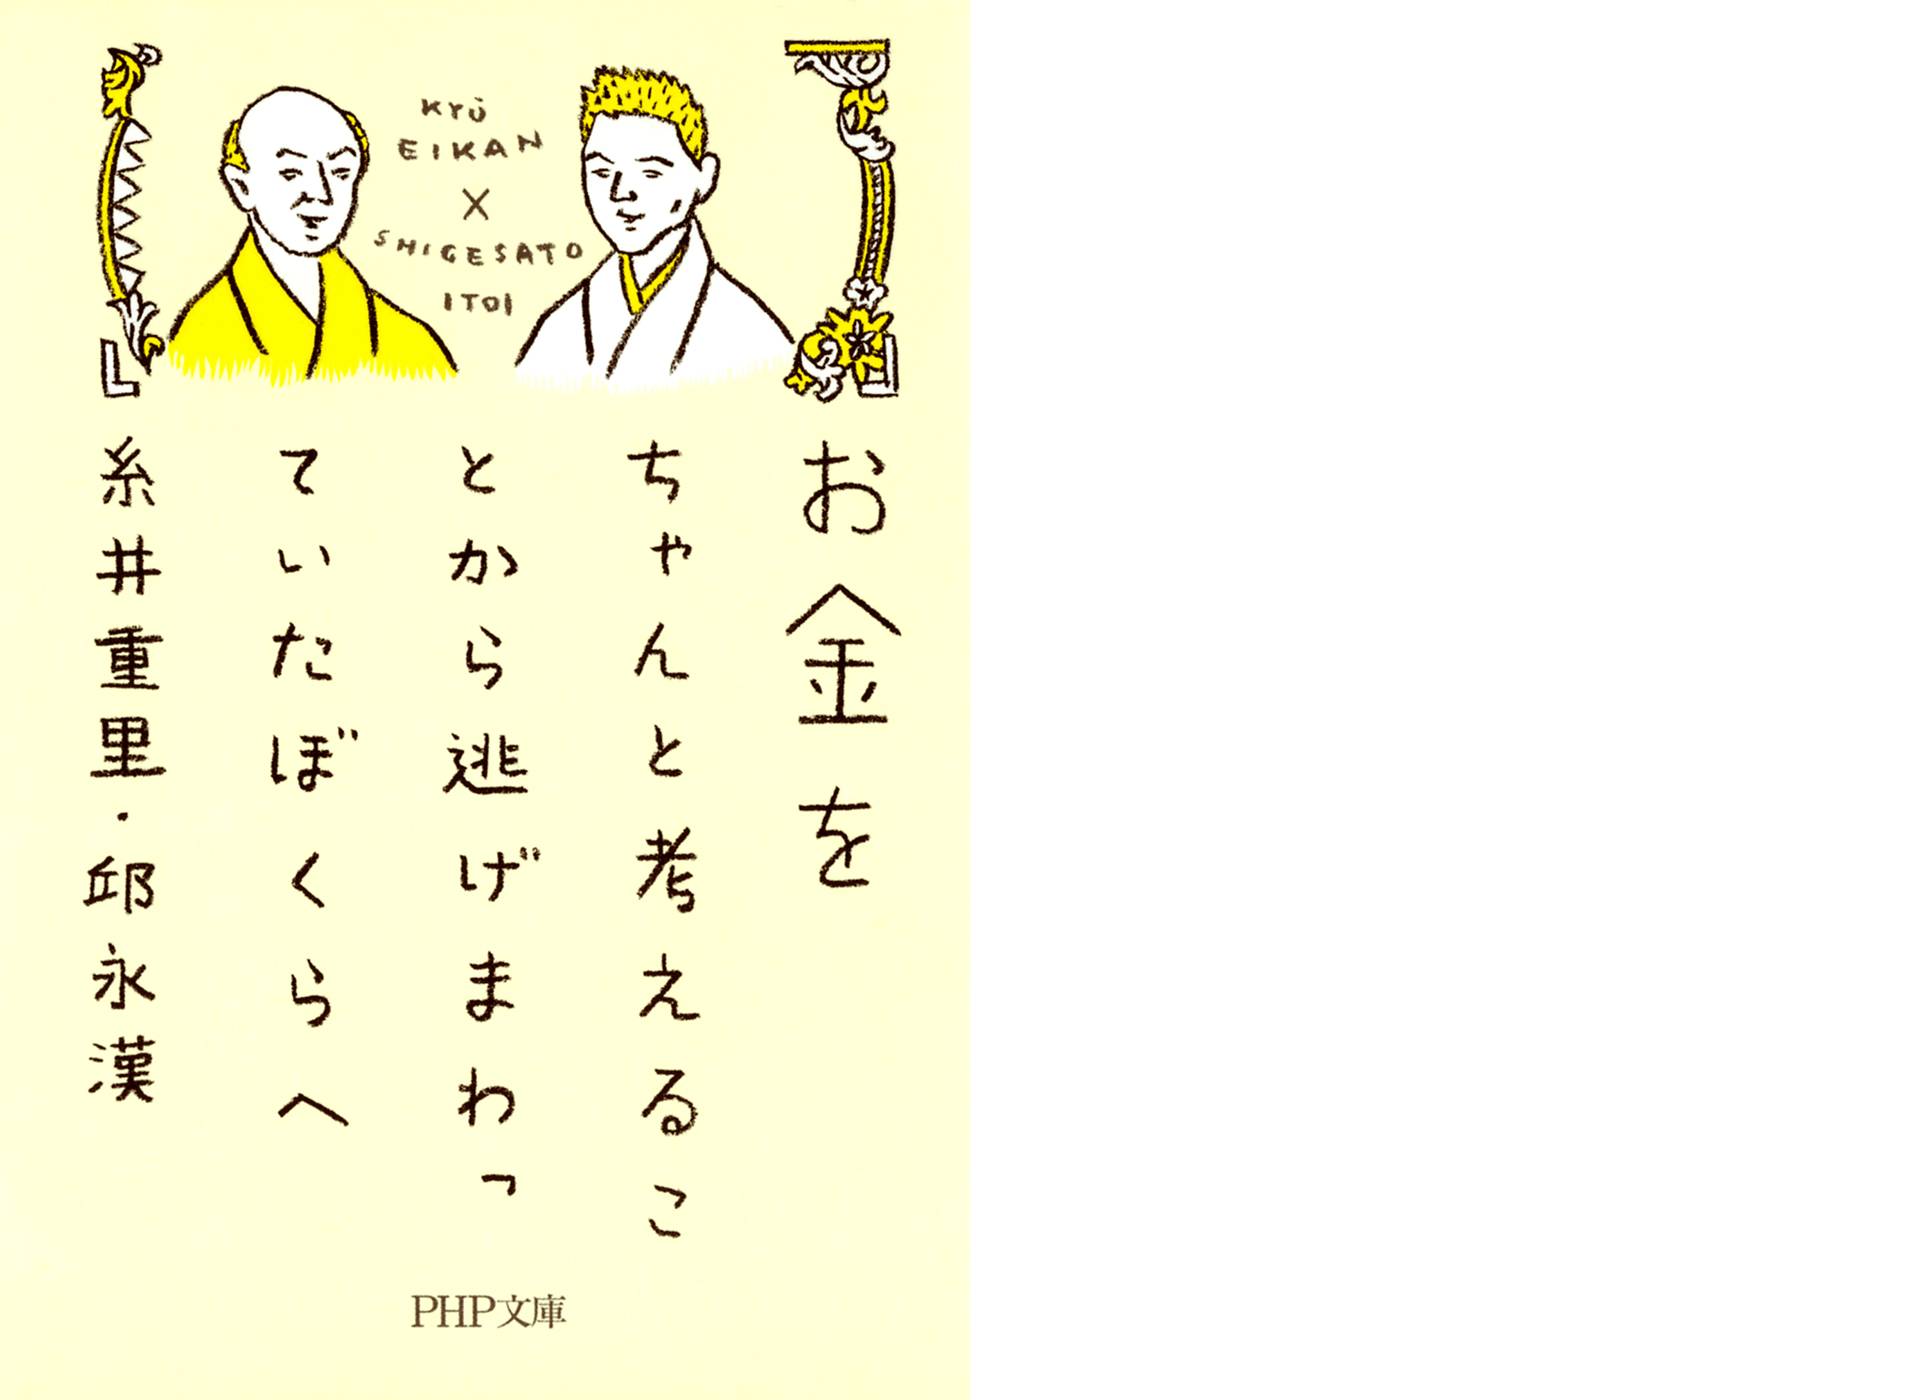 KYŪ
EIKAN
×
SHIGESATO
ITOI
お金を
ちゃんと考えるこ
とから逃げまわっ
ていたぼくらへ
糸井重里・邱永漢
PHP文庫